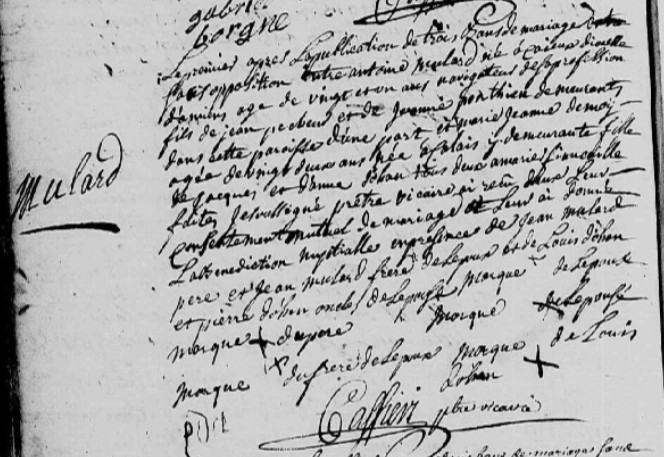 gabrie
borgne
Le premier apres La publication de trois Bans de mariage
sans opposition entre antoine mulard né à Caieux diocesse
d'amiens agé de vingt et un ans navigateur de sa profession
fils de jean pecheur et de Jeanne ponthieu demeurants
dans cette paroisse d'une part et marie Jeanne
agée de vingt deux ans née a Calais y demeurante fille
de jacques et d'anne Dohan tous deux a marier
faites Je soussigné pretre vicaire ai reçu d'eux Leur
Consentement mutuel de mariage et Leur ai donné
La benediction nuptialle en presence de Jean mulard
pere et Jean mulard frere de Lepoux et de Louis dohan
et pierre dohan oncles de Lepousé marque de Lepoux
Mulard
marque + du pere marque + de Lepousé
marque + du frere de Lepoux marque + de Louis
Dohan
Caffieri ptre vicaire